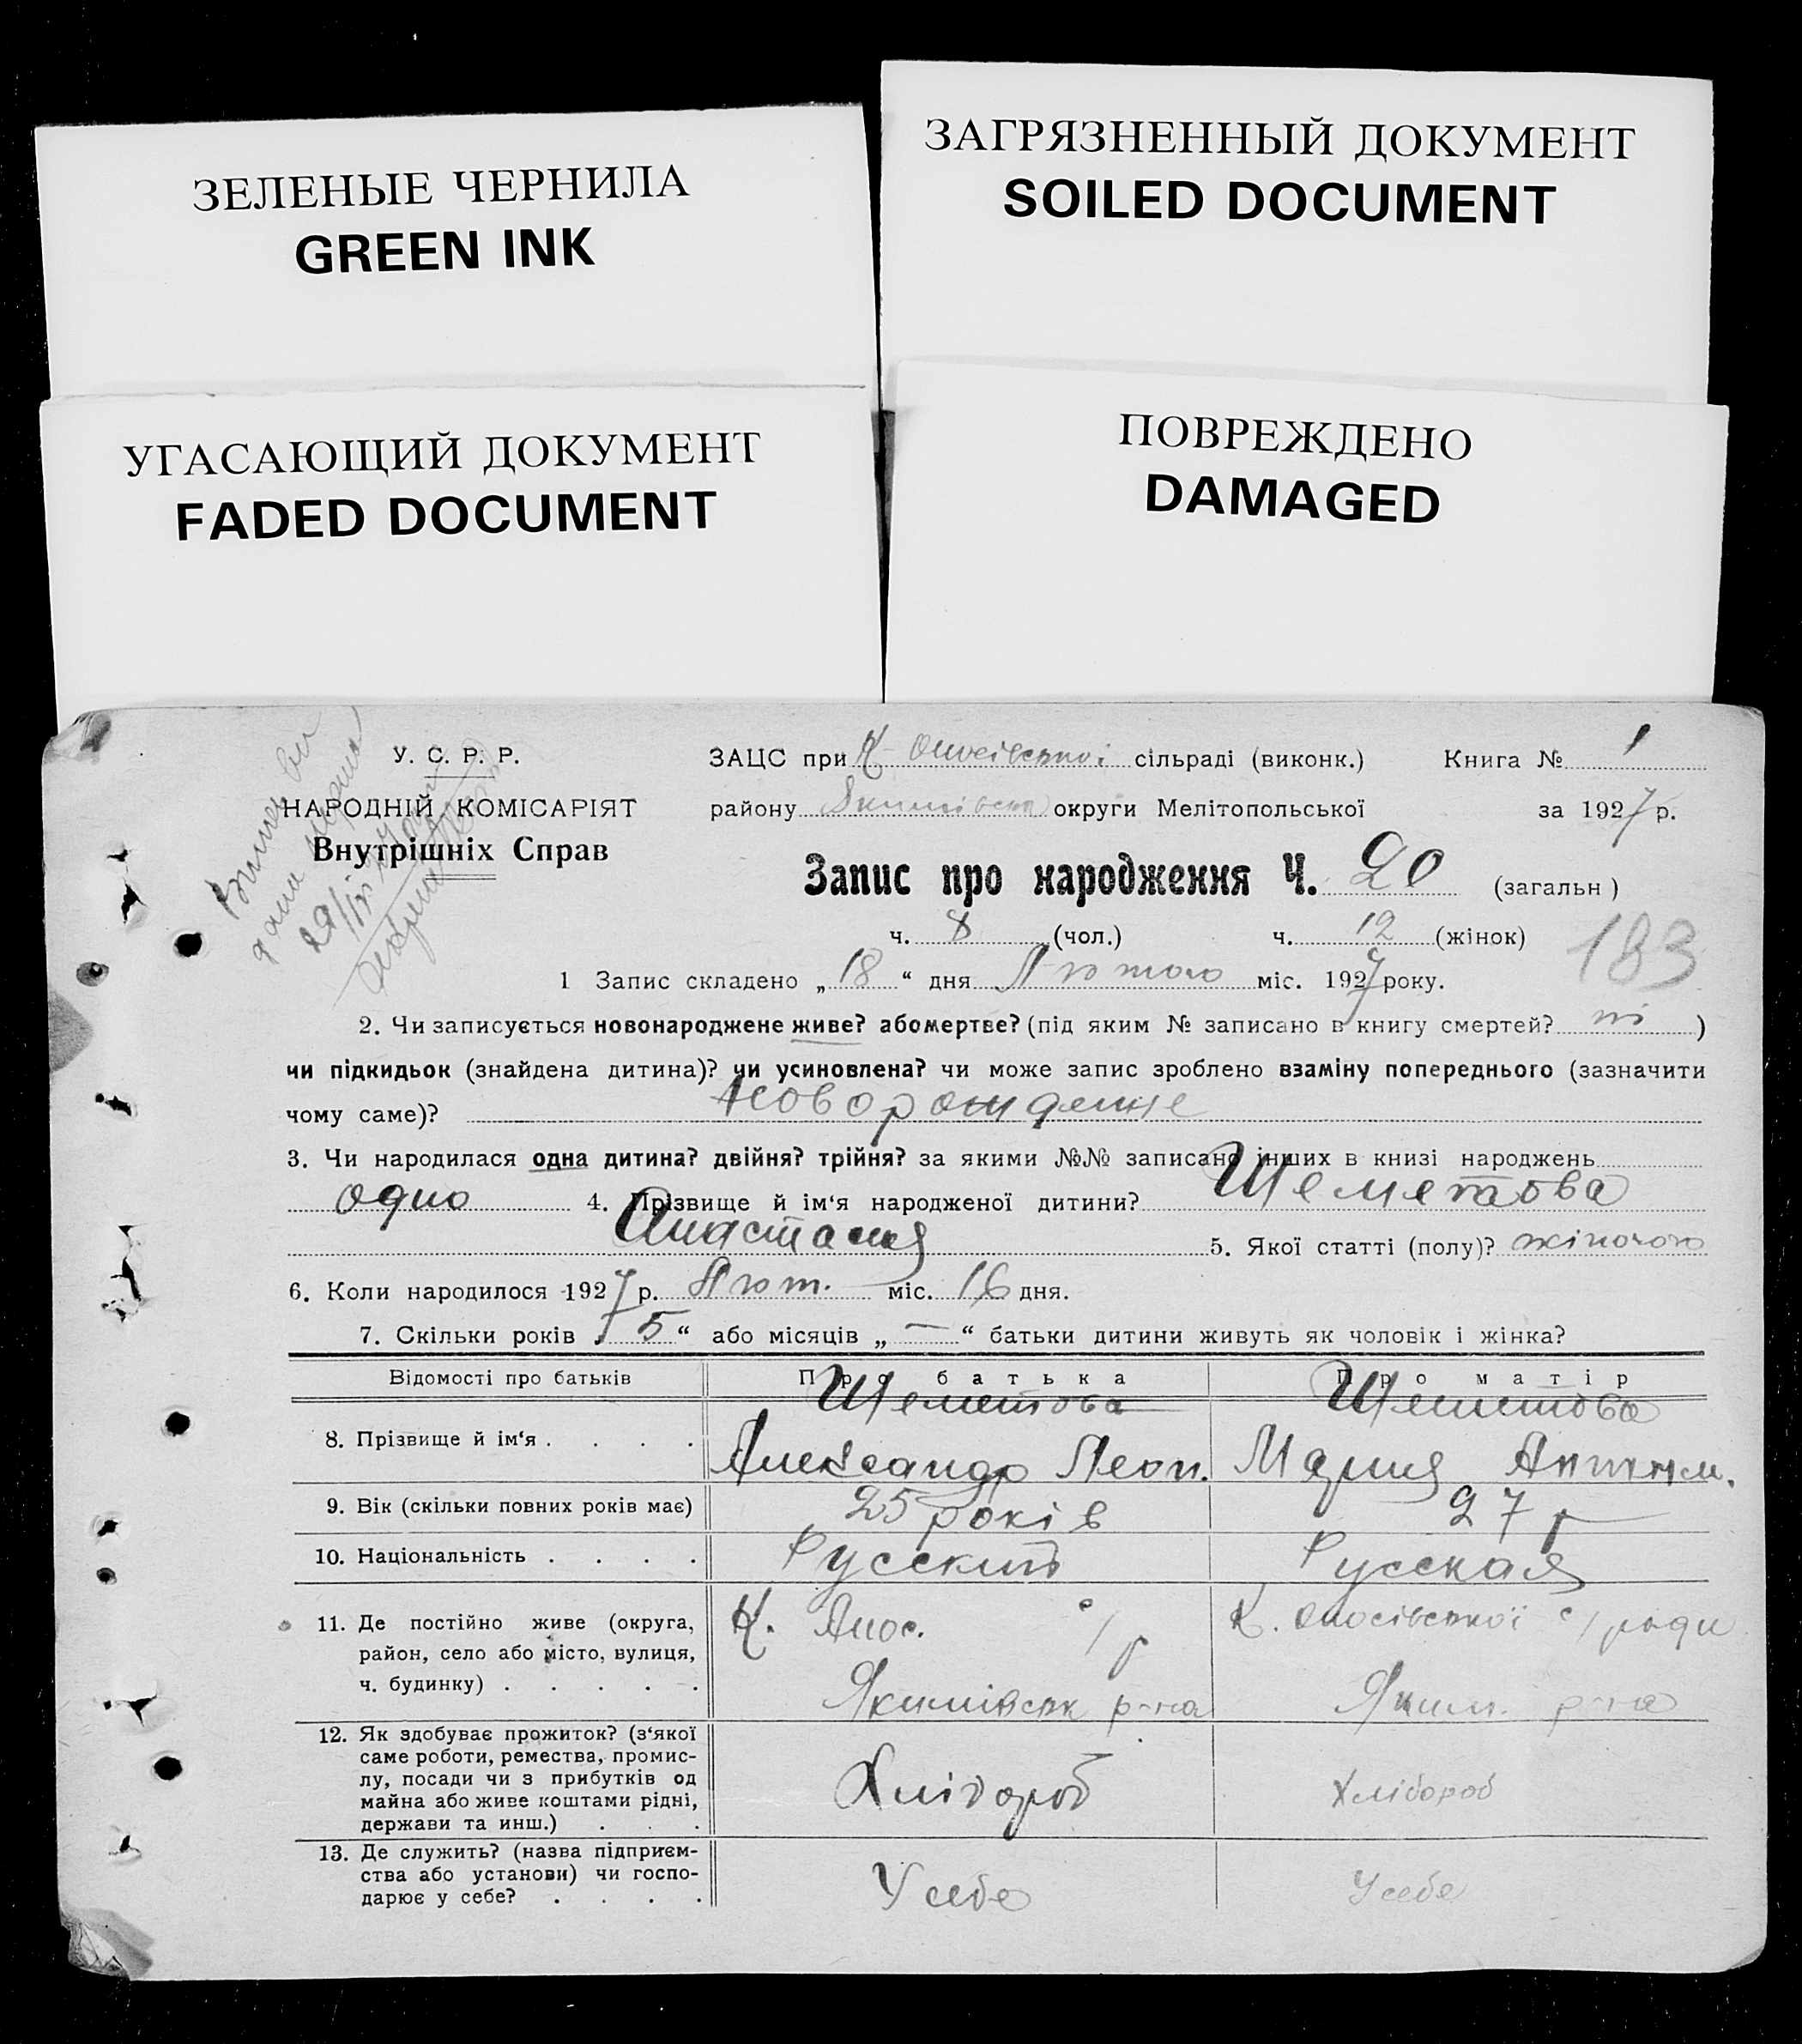 ЗЕЛЕНЫЕ ЧЕРНИЛА
GREEN INK
ЗАГРЯЗНЕННЫЙ ДОКУМЕНТ
SOILED DOCUMENT
УГАСАЮЩИЙ ДОКУМЕНТ
FADED DOCUMENT
ПОВРЕЖДЕНО
DAMAGED
У. С. Р. Р.
НАРОДНІЙ КОМІСАРІЯТ
Внутрішніх Справ
29/IV
ЗАЦС при К сільраді (виконк.) Книга № 1
району округи Мелітопольської за 1927 р.
Запис про народження Ч. 20 (загальн)
ч. 8 (чол.) ч. 12 (жінок)
183
1 Запис складено „18“ дня Лютого міс. 1927 року.
2. Чи записується новонароджене живе? або мертве? (під яким № записано в книгу смертей? ні )
чи підкидьок (знайдена дитина)? чи усиновлена? чи може запис зроблено взаміну попереднього (зазначити
чому саме)? Новорожденне
3. Чи народилася одна дитина? двійня? трійня? за якими №№ записано інших в книзі народжень
одно 4. Прізвище й ім‘я народженої дитини? Шеметова
Анастасия 5. Якої статті (полу)? жіночого
6. Коли народилося 1927 р. Лют. міс. 16 дня.
7. Скільки років „ 5 “ або місяців „ — “ батьки дитини живуть як чоловік і жінка?
Відомості про батьків Про батька Про матір
8. Прізвище й ім‘я . . . . Шеметова Александр Леон. Шеметова Мария
9. Вік (скільки повних років має) 25 років 27 р
10. Національність . . . . Русский Русская
11. Де постійно живе (округа,
район, село або місто, вулиця,
ч. будинку) . . . . .
К. Анос. с/р
Якимівськ р-на
К. с/ради
Яким. р-на
12. Як здобуває прожиток? (з‘якої
саме роботи, ремества, промис-
лу, посади чи з прибутків од
майна або живе коштами рідні,
держави та инш.) . . .
Хлібороб Хлібороб
13. Де служить? (назва підприєм-
ства або установи) чи госпо-
дарює у себе? . . . .
У себе У себе